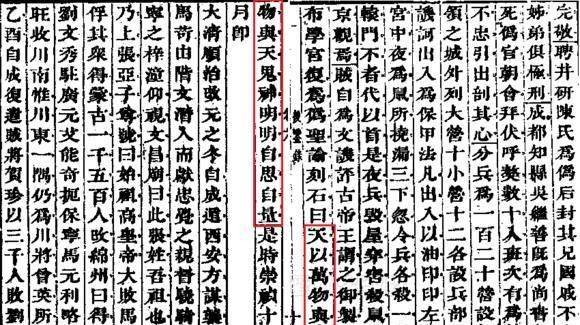 完敬聘井研陳氏爲偽后封其兄國戚不
姊弟俱極刑成都知縣吳繼善偽爲尚書
死爲官朝會拜伏呼獒數十人班次有
不忠引出剖其心分兵爲一百二十營設
領之城外列大營十小營十二各設兵部
譏訶出入爲保甲法凡出入以油印印左
宮中夜爲鼠所撓漏三下忽令兵各殺一
轅門不者代以首是夜兵毀屋穿窖殺鼠
京觀焉賊自爲文譏評古帝王謂之御製
布學宮復爲偽聖諭刻石曰天以萬物與
物與天鬼神明明自思自量是時崇禎十
月卽
大清順治改元之冬自成遣西安方謀襲
馬苛由階文潛入而獻忠覺之親督驍騎
寧之梓潼仰視文昌廟曰此張姓吾祖也
乃上張亞子尊號曰始祖高皇帝大敗馬
俘其衆得蒙古一千五百人攻綿州曰得
劉文秀駐廣元艾能奇扼保寧馬元利略
旺收川南惟川東一隅仍爲川將曾英所
乙酉自成復遣賊將賀珍以三千人敗劉